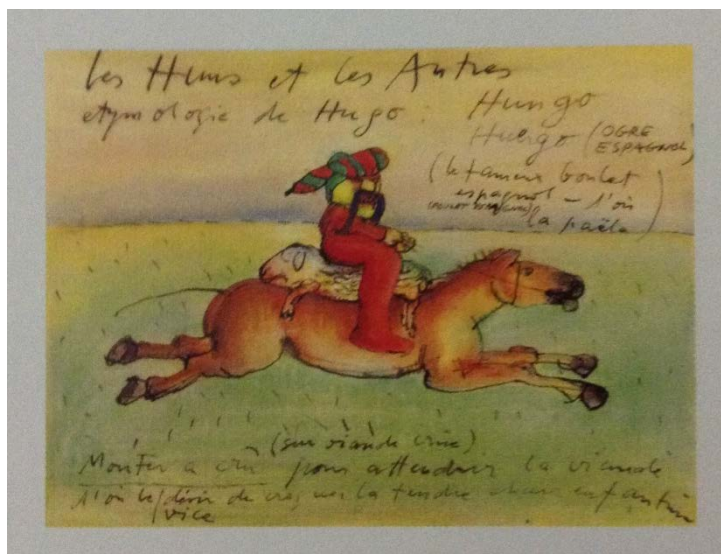 les Huns et les Autres
etymologie de Hugo : Hungo
Huergo (OGRE
ESPAGNOL)
(le fameux boulet
espagnol – d'où
la paëla)
(sur viande crue)
Monter à cru pour attendrir la viande
d'où le désir de croquer la tendre chair enfantine
vice